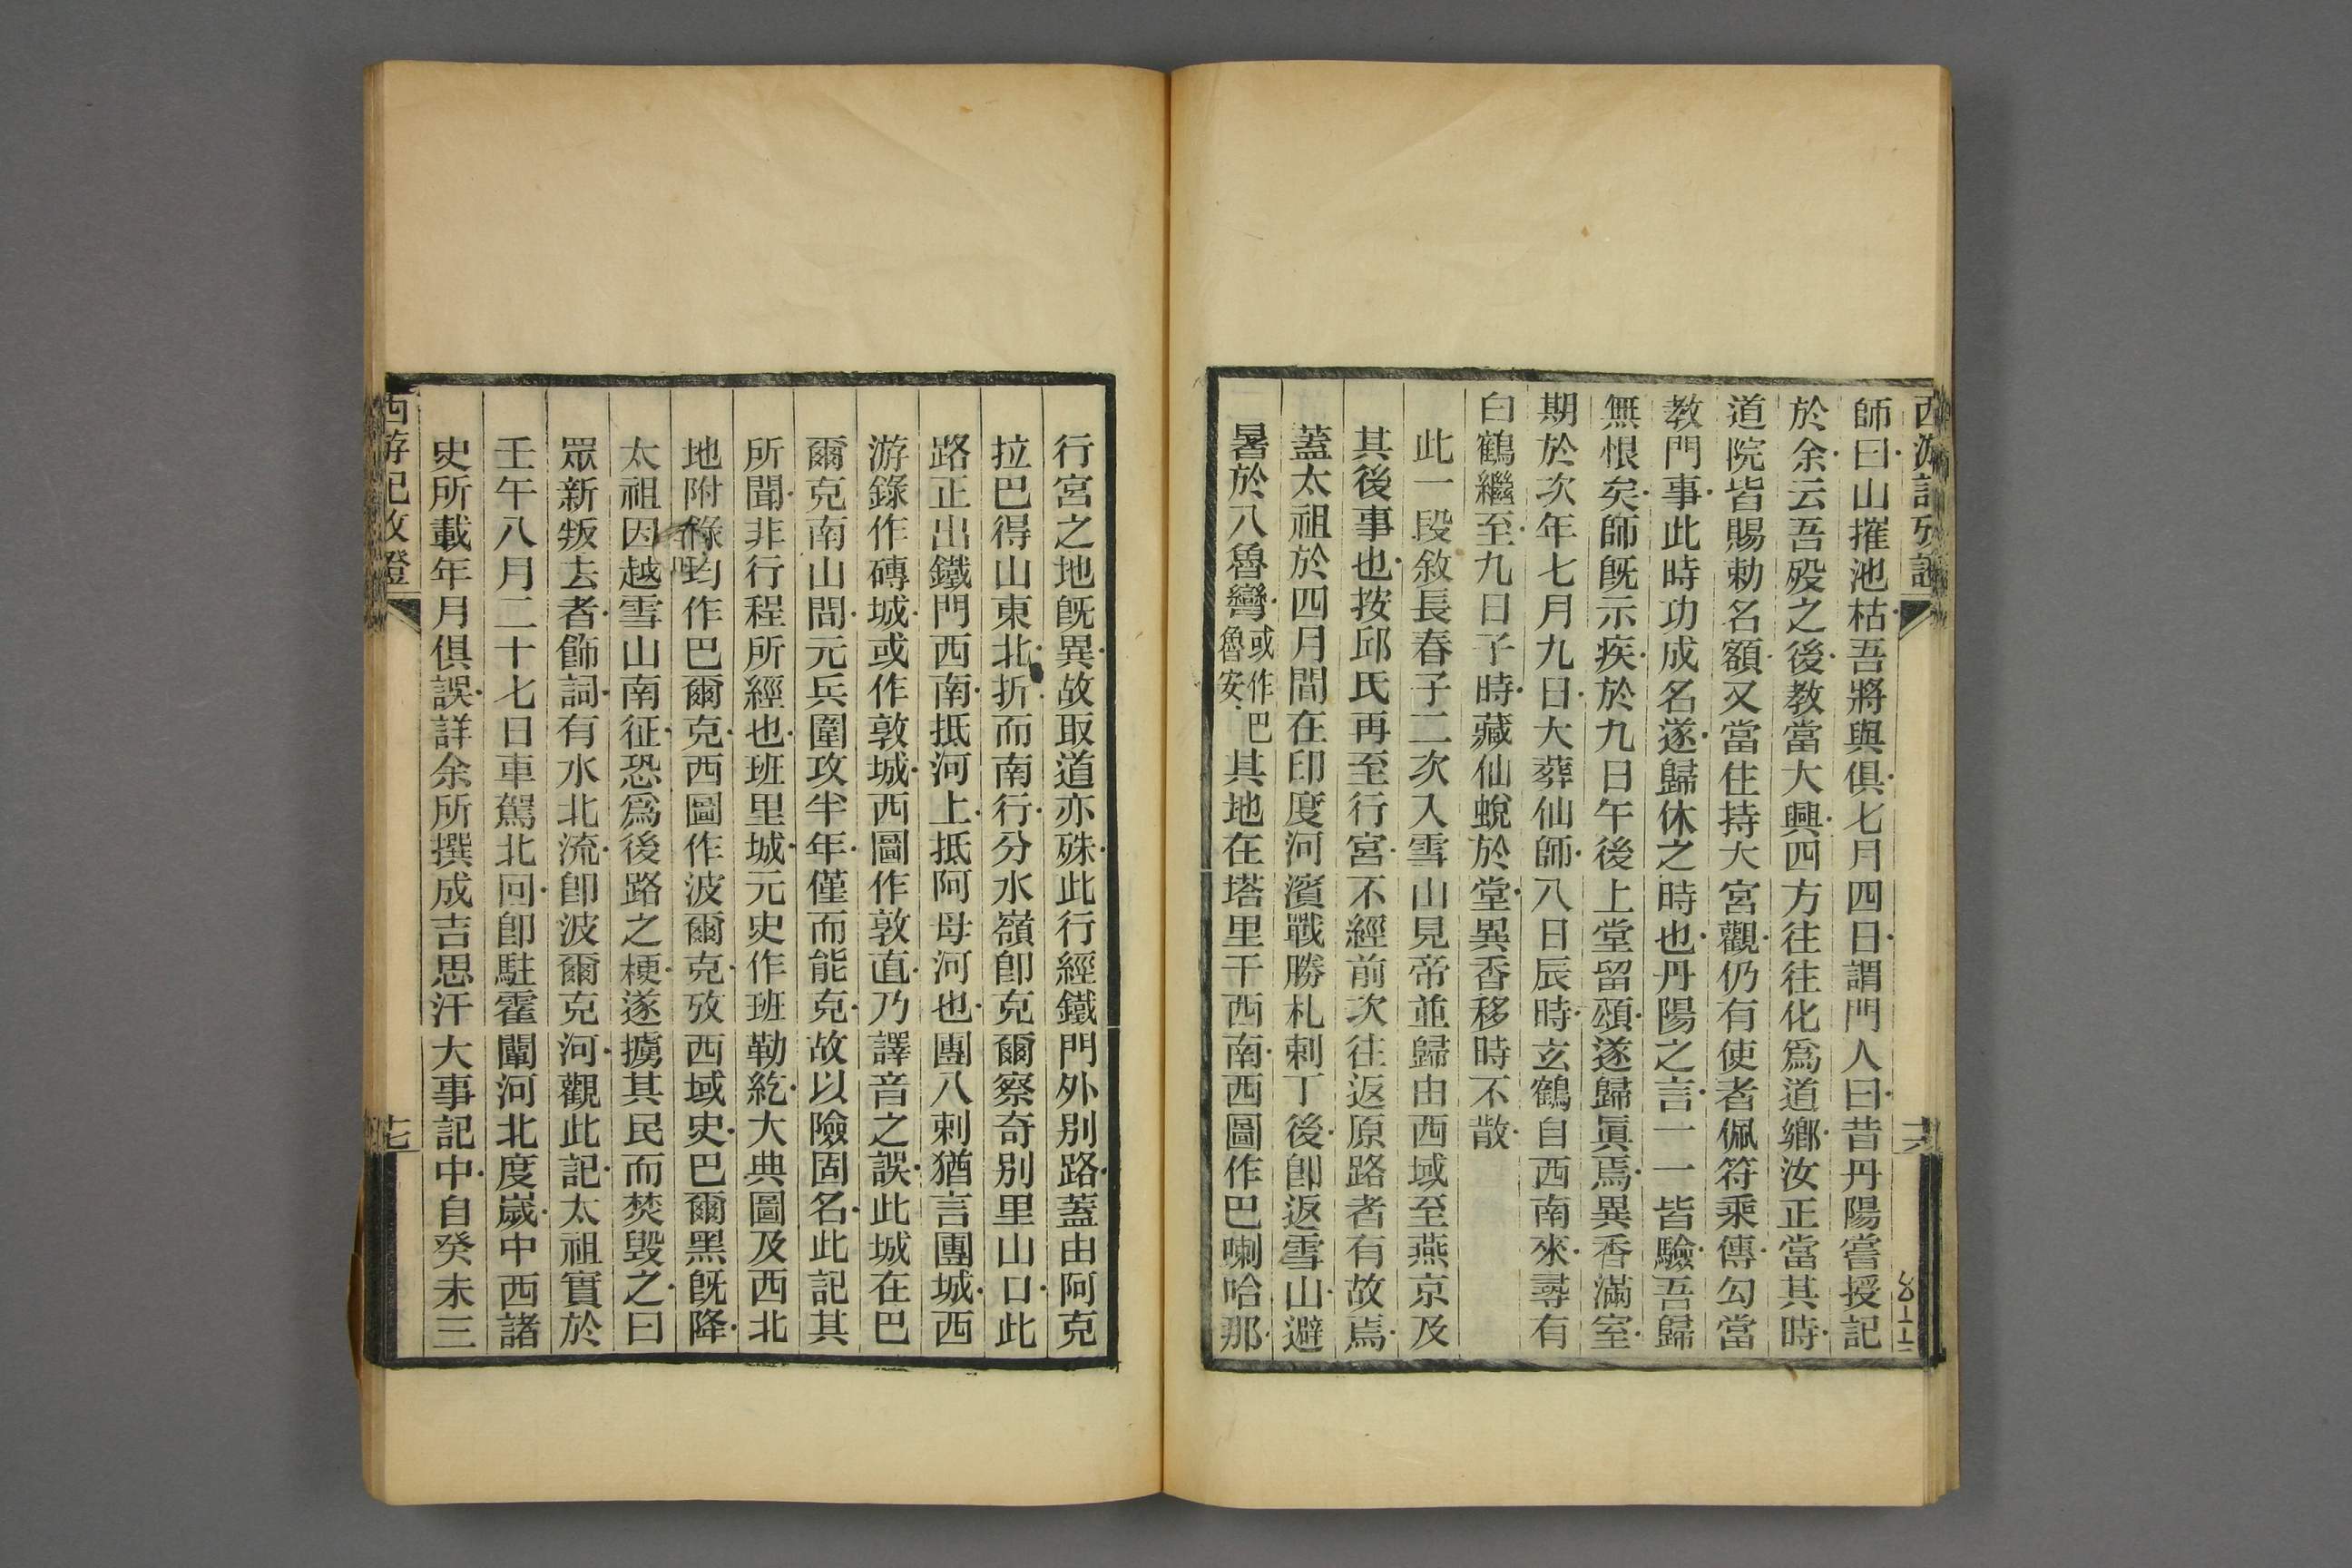 西游記攷證
十六
師曰山摧池枯吾將與俱七月四日謂門人曰昔丹陽嘗授記
於余云吾歿之後教當大興四方往往化爲道鄉汝正當其時
道院皆賜勅名額又當住持大宮觀仍有使者佩符乘傳勾當
教門事此時功成名遂歸休之時也丹陽之言一一皆驗吾歸
無恨矣師旣示疾於九日午後上堂留頌遂歸眞焉異香滿室
期於次年七月九日大葬仙師八日辰時玄鶴自西南來尋有
白鶴繼至九日子時藏仙蛻於堂異香移時不散
此一段敘長春子二次入雪山見帝並歸由西域至燕京及
其後事也按邱氏再至行宮不經前次往返原路者有故焉
蓋太祖於四月間在印度河濱戰勝札剌丁後卽返雪山避
暑於八魯彎或作巴魯安其地在塔里干西南西圖作巴喇哈那
行宮之地旣異故取道亦殊此行經鐵門外別路蓋由阿克
拉巴得山東北折而南行分水嶺卽克爾察奇別里山口此
路正出鐵門西南抵河上抵阿母河也團八剌猶言團城西
游錄作磚城或作敦城西圖作敦直乃譯音之誤此城在巴
爾克南山間元兵圍攻半年僅而能克故以險固名此記其
所聞非行程所經也班里城元史作班勒紇大典圖及西北
地附錄均作巴爾克西圖作波爾克攷西域史巴爾黑旣降
太祖因越雪山南征恐爲後路之梗遂擄其民而焚毀之曰
眾新叛去者飾詞有水北流卽波爾克河觀此記太祖實於
壬午八月二十七日車駕北回卽駐霍闡河北度歲中西諸
史所載年月俱誤詳余所撰成吉思汗大事記中自癸未三
西游記攷證
十七